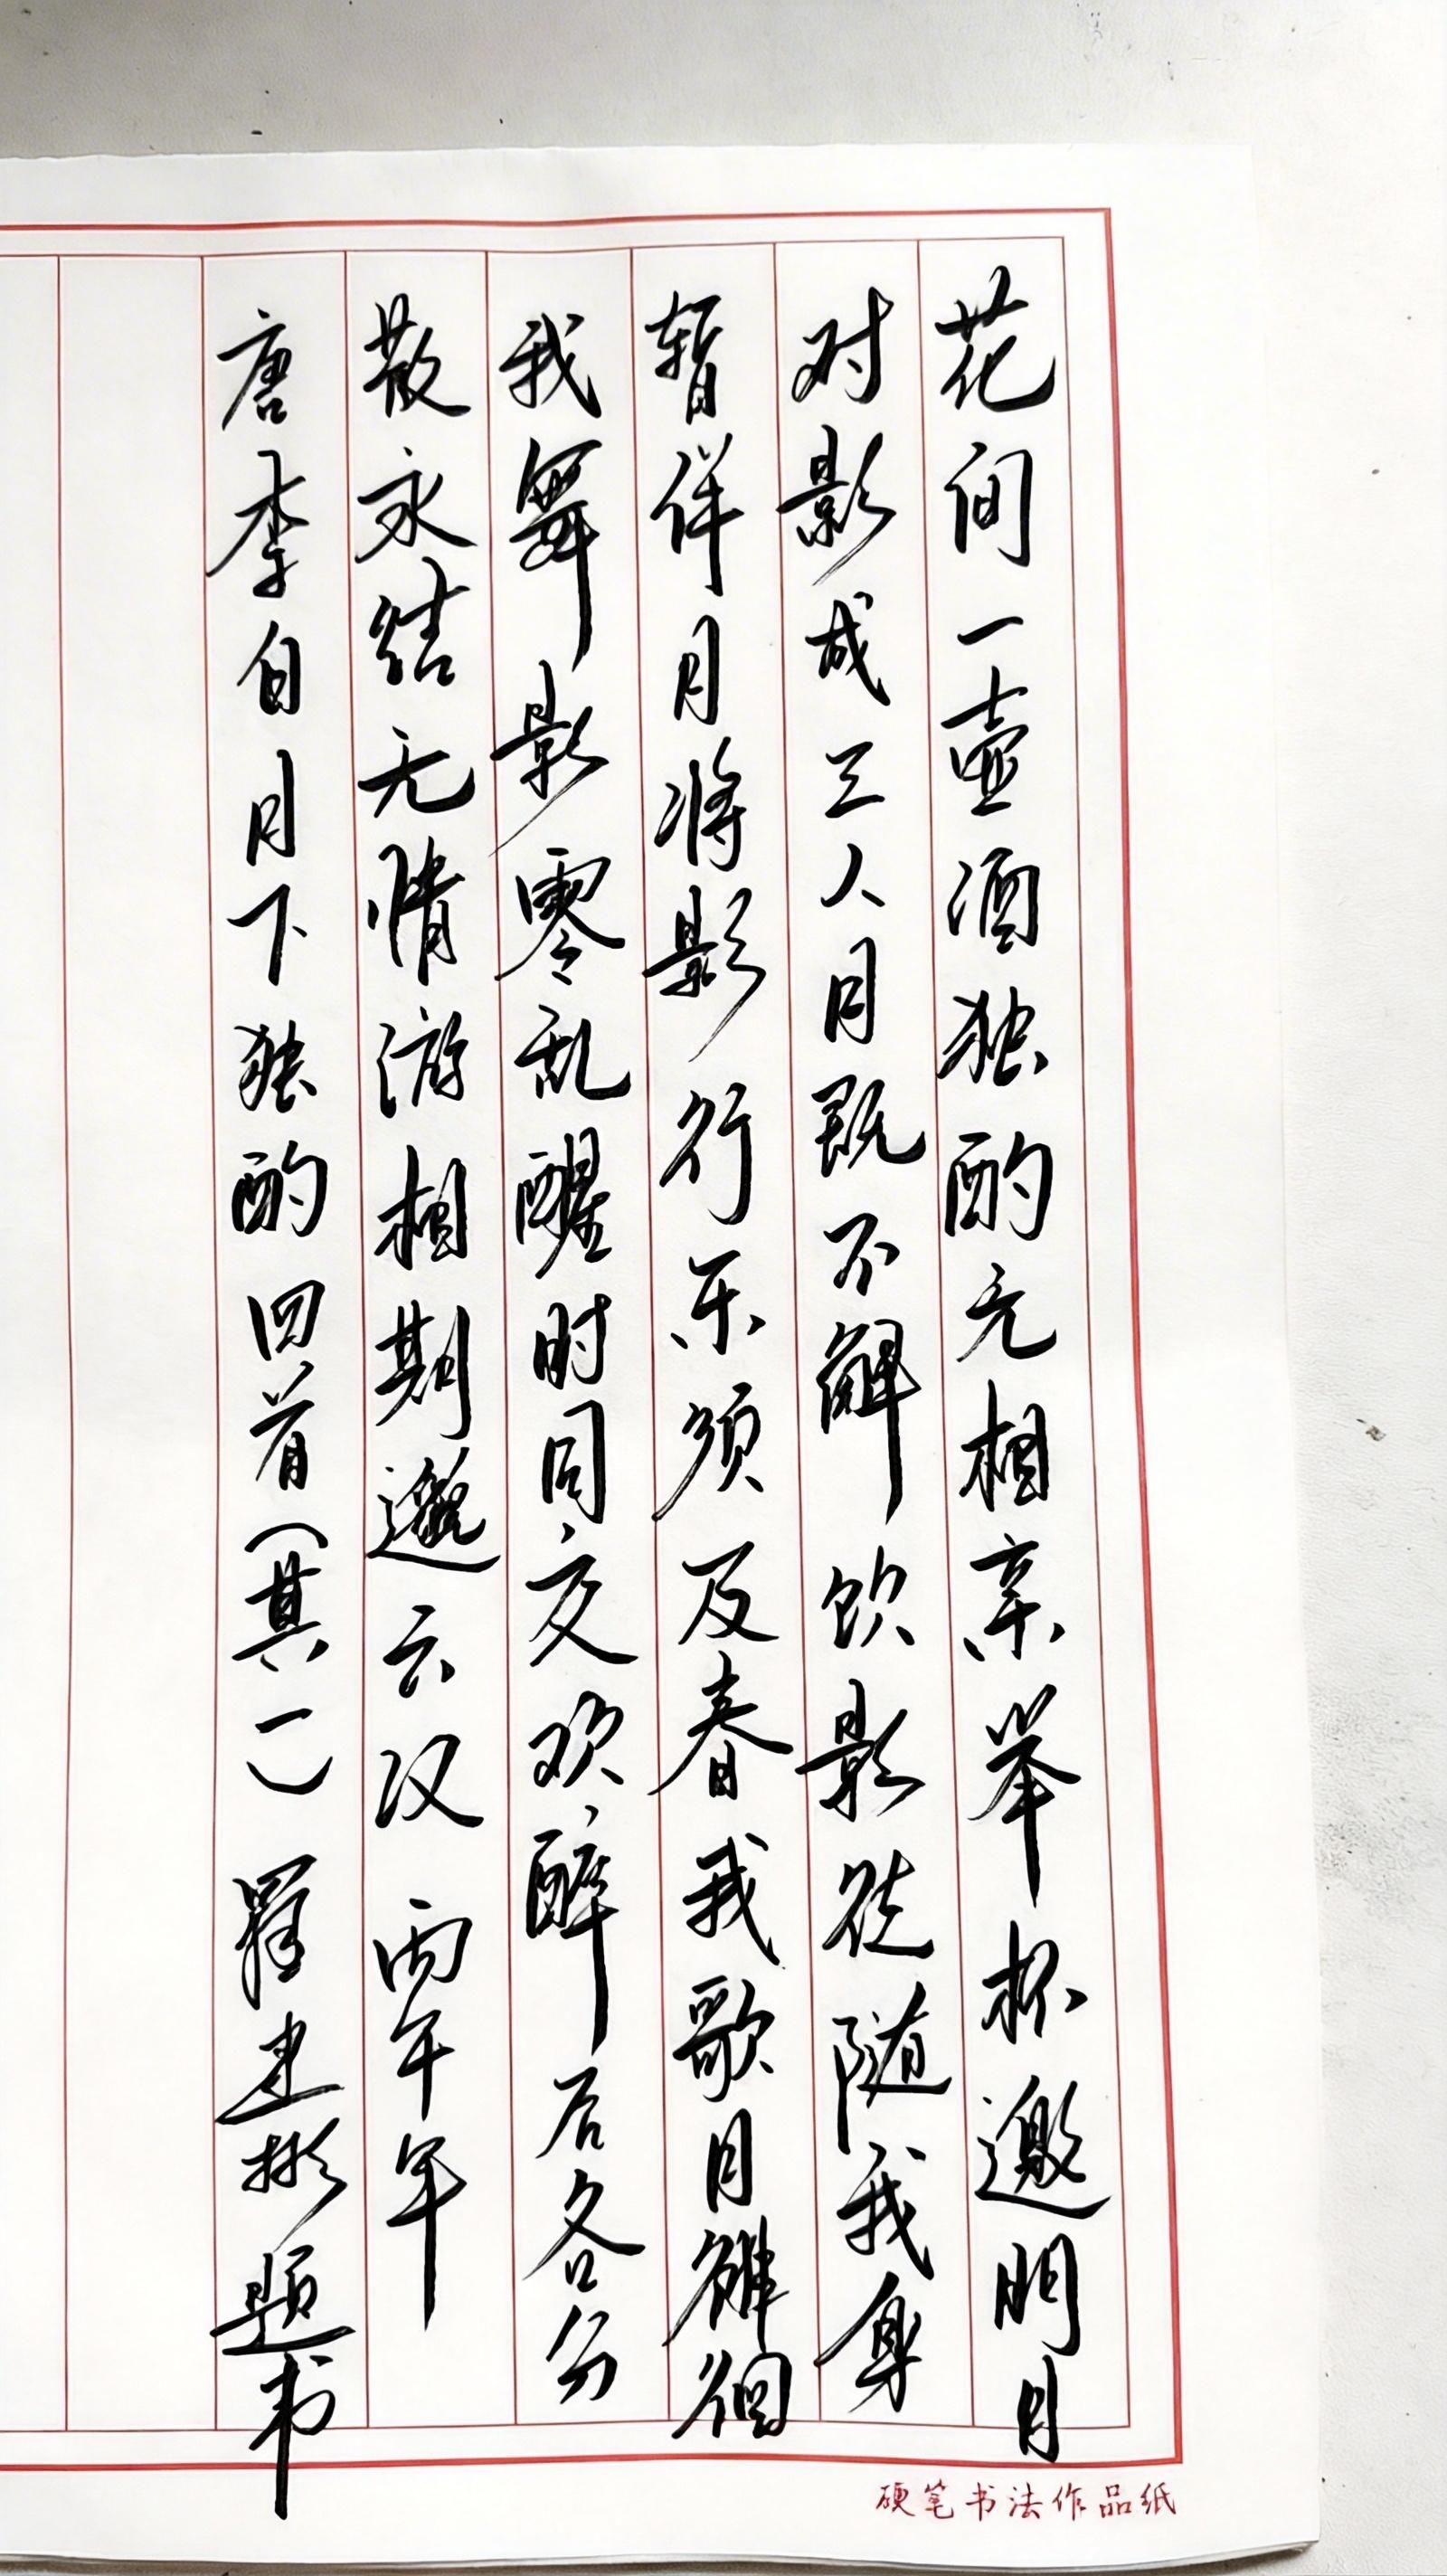 花间一壶酒独酌无相亲举杯邀明月
对影成三人月既不解饮影徒随我身
暂伴月将影行乐须及春我歌月徘徊
我舞影零乱醒时同交欢醉后各分
散永结无情游相期邈云汉丙午年
唐李白月下独酌四首(其一)罗建彬题书
硬笔书法作品纸